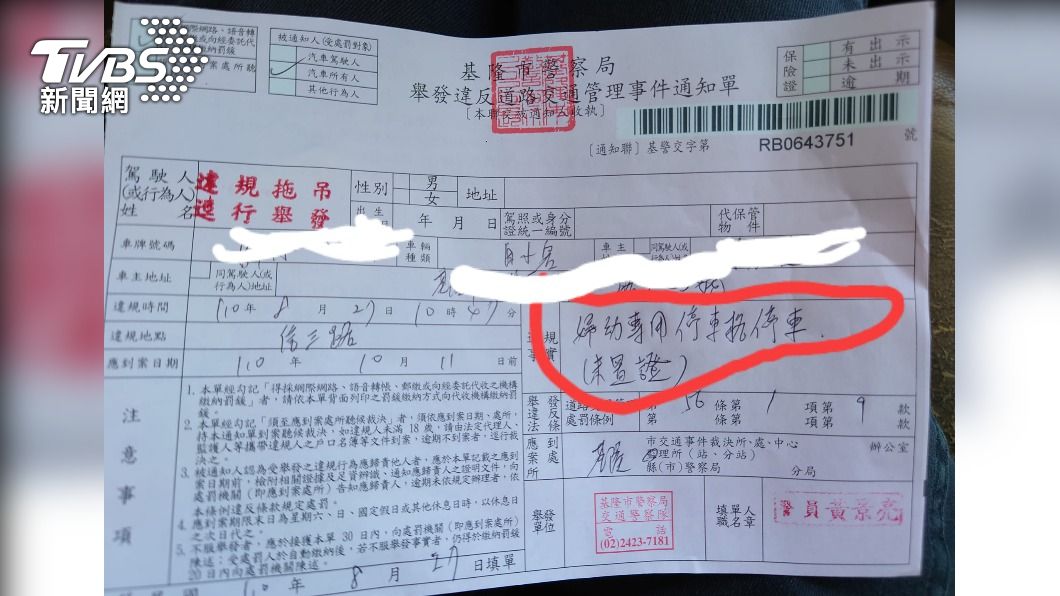 TVBS
新聞網
網際網路、語音轉
繳納罰鍰
被通知人(受處罰對象)
汽車駕駛人
汽車所有人
其他行為人
保險證
有出示
未出示
逾期
基隆市警察局
舉發違反道路交通管理事件通知單
〔本聯交被通知人收執〕
〔通知聯〕基警交字第 RB0643751 號
駕駛人
(或行為人)
姓名
違規拖吊
逕行舉發
性別
男
女
地址
年 月 日
駕照或身分
證統一編號
代保管
物件
車牌號碼
車輛
種類
自小客
車主
同駕駛人(或
車主地址
同駕駛人(或
行為人)地址
違規時間
110年 8 月 27 日 10時47分
違規地點
信三路
違規
事實
婦幼專用停車格停車.
(未置證)
應到案日期
110年 10 月 11 日前
注意事項
1. 本單經勾記「得採網際網路、語音轉帳、郵繳或向經委託代收之機構
繳納罰鍰」者,請依本單背面列印之罰鍰繳納方式向代收機構繳納罰
鍰。
2. 本單經勾記「須至應到案處所聽候裁決」者,須依應到案日期、處所,
持本通知單到案聽候裁決,如違規人未滿18歲,請由法定代理人、
監護人等攜帶違規人之戶口名簿等文件到案,逾期不到案者,逕行裁
決之。
3. 被通知人認為受舉發之違規行為應歸責他人者,應於本單記載之應到
案日期前,檢附相關證據及足資辨識、通知應歸責人之證明文件,向
處罰機關(即應到案處所)告知應歸責人,逾期未依規定辦理者,依
本條例違反條款規定處罰。
4. 應到案期限末日為星期六、日、國定假日或其他休息日時,以休息日
之次日代之。
5. 不服舉發者,應於接獲本單30日內,向處罰機關(即應到案處所)
陳述;受處罰人於自動繳納後,若不服舉發事實者,仍得於繳納罰鍰
20日內向處罰機關陳述。
舉發
違反
法條
道路交通
處罰條例
第 56 條第 1 項第 9 款
條第 項第 款
應到
案處
所
基隆
市交通事件裁決所、處、中心
理所(站、分站)
縣(市)警察局
辦公室
分局
舉發
單位
基隆市警察局
交通警察隊
電話
(02)2423-7181
填單人
職名章
警員黃景亮
110 年 8 月 27 日填單